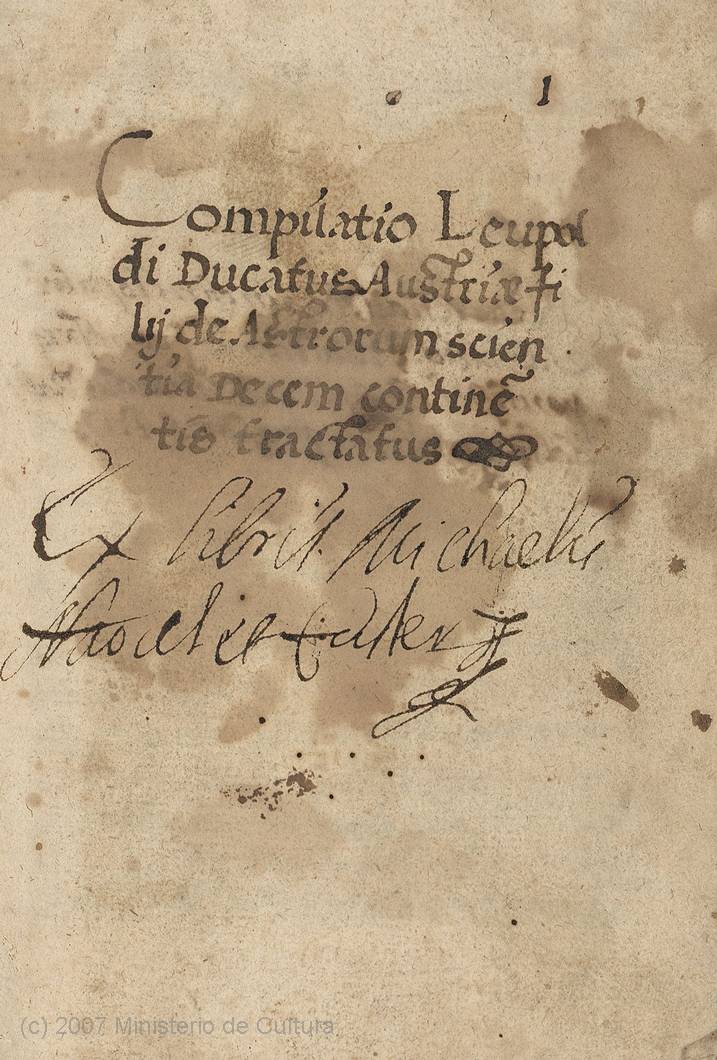 1
Compilatio Leupol
di Ducatus Austriæ fi
lij de Astrorum scien
tia Decem continẽ
tis tractatus
Ex libris Michaelis
(c) 2007 Ministerio de Cultura